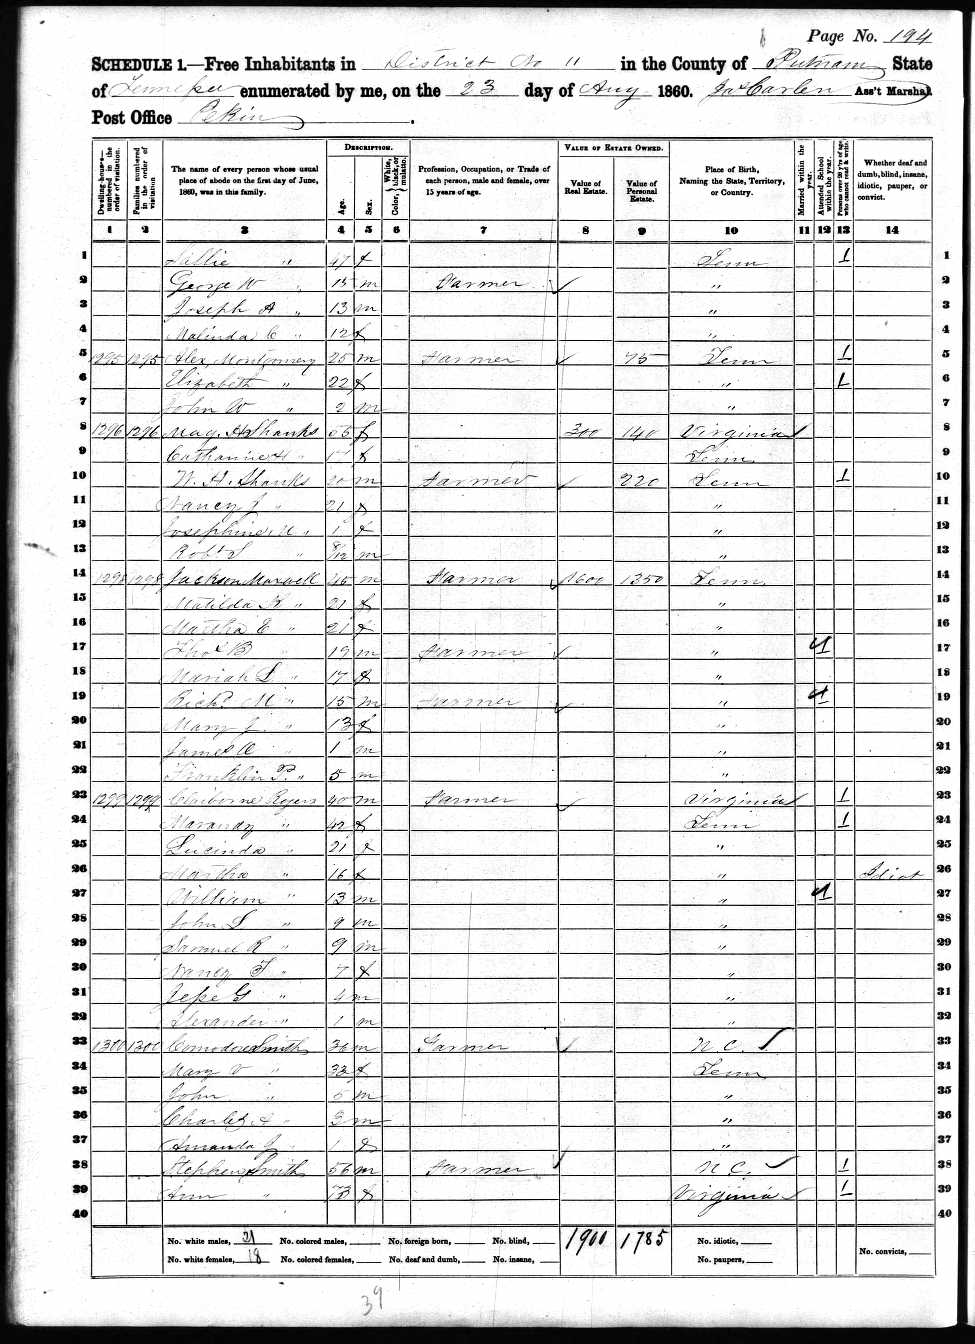 Page No. 194
SCHEDULE 1.—Free Inhabitants in District No 11 in the County of Putnam State
of Tennessee enumerated by me, on the 23 day of Aug 1860. Jas Carlen Ass't Marshal.
Post Office Pekin.
Dwelling-houses—numbered in the order of visitation.
Families numbered in the order of visitation
The name of every person whose usual place of abode on the first day of June, 1860, was in this family.
DESCRIPTION.
Age.
Sex.
Color, White, black, or mulatto.
Profession, Occupation, or Trade of each person, male and female, over 15 years of age.
VALUE OF ESTATE OWNED.
Value of Real Estate.
Value of Personal Estate.
Place of Birth, Naming the State, Territory, or Country.
Married within the year.
Attended School within the year.
Persons over 20 y'rs of age who cannot read & write.
Whether deaf and dumb, blind, insane, idiotic, pauper, or convict.
1 2 3 4 5 6 7 8 9 10 11 12 13 14
1 " 47 f Tenn 1 1
2 George W " 15 m Farmer " 2
3 Joseph A " 13 m " 3
4 Malinda C " 12 f " 4
5 1295 1295 Alex Montgomery 25 m Farmer 75 Tenn 1 5
6 Elizabeth " 22 f " 1 6
7 John W " 2 m " 7
8 1296 1296 Shanks 55 f 300 140 Virginia 8
9 Catharine H " f Tenn 9
10 Shanks 20 m Farmer 220 Tenn 1 10
11 Nancy J " 21 f " 11
12 Josephine " 1 f " 12
13 Robt S " 8/12 m " 13
14 1298 1298 Jackson Maxwell 45 m Farmer 1600 1350 Tenn 14
15 Matilda " 21 f " 15
16 Martha E " 21 f " 16
17 Thos B " 19 m Farmer " 1 17
18 Mariah L " 17 f " 18
19 Richd M " 15 m Farmer " 1 19
20 Mary J " 13 f " 20
21 James " 1 m " 21
22 Franklin P. " 5 m " 22
23 1299 1299 Claiborne Rogers 40 m Farmer Virginia 1 23
24 " 42 f Tenn 1 24
25 Lucinda " 21 f " 25
26 Martha " 16 f " Idiot 26
27 William " 13 m " 1 27
28 John L " 9 m " 28
29 Samuel R " 9 m " 29
30 Nancy T " 7 f " 30
31 Jesse G " 4 m " 31
32 Alexander " 1 m " 32
33 1300 1300 Comodore Smith 36 m Farmer N C. 33
34 Mary V " 33 f Tenn 34
35 John " 5 m " 35
36 Charles A " 3 m " 36
37 Amanda J " 1 f " 37
38 Stephen Smith 56 m Farmer N C. 1 38
39 Ann " f Virginia 1 39
40 40
No. white males, 21 No. colored males, No. foreign born, No. blind, 1900 1785 No. idiotic,
No. white females, 18 No. colored females, No. deaf and dumb, No. insane, No. paupers, No. convicts,
39